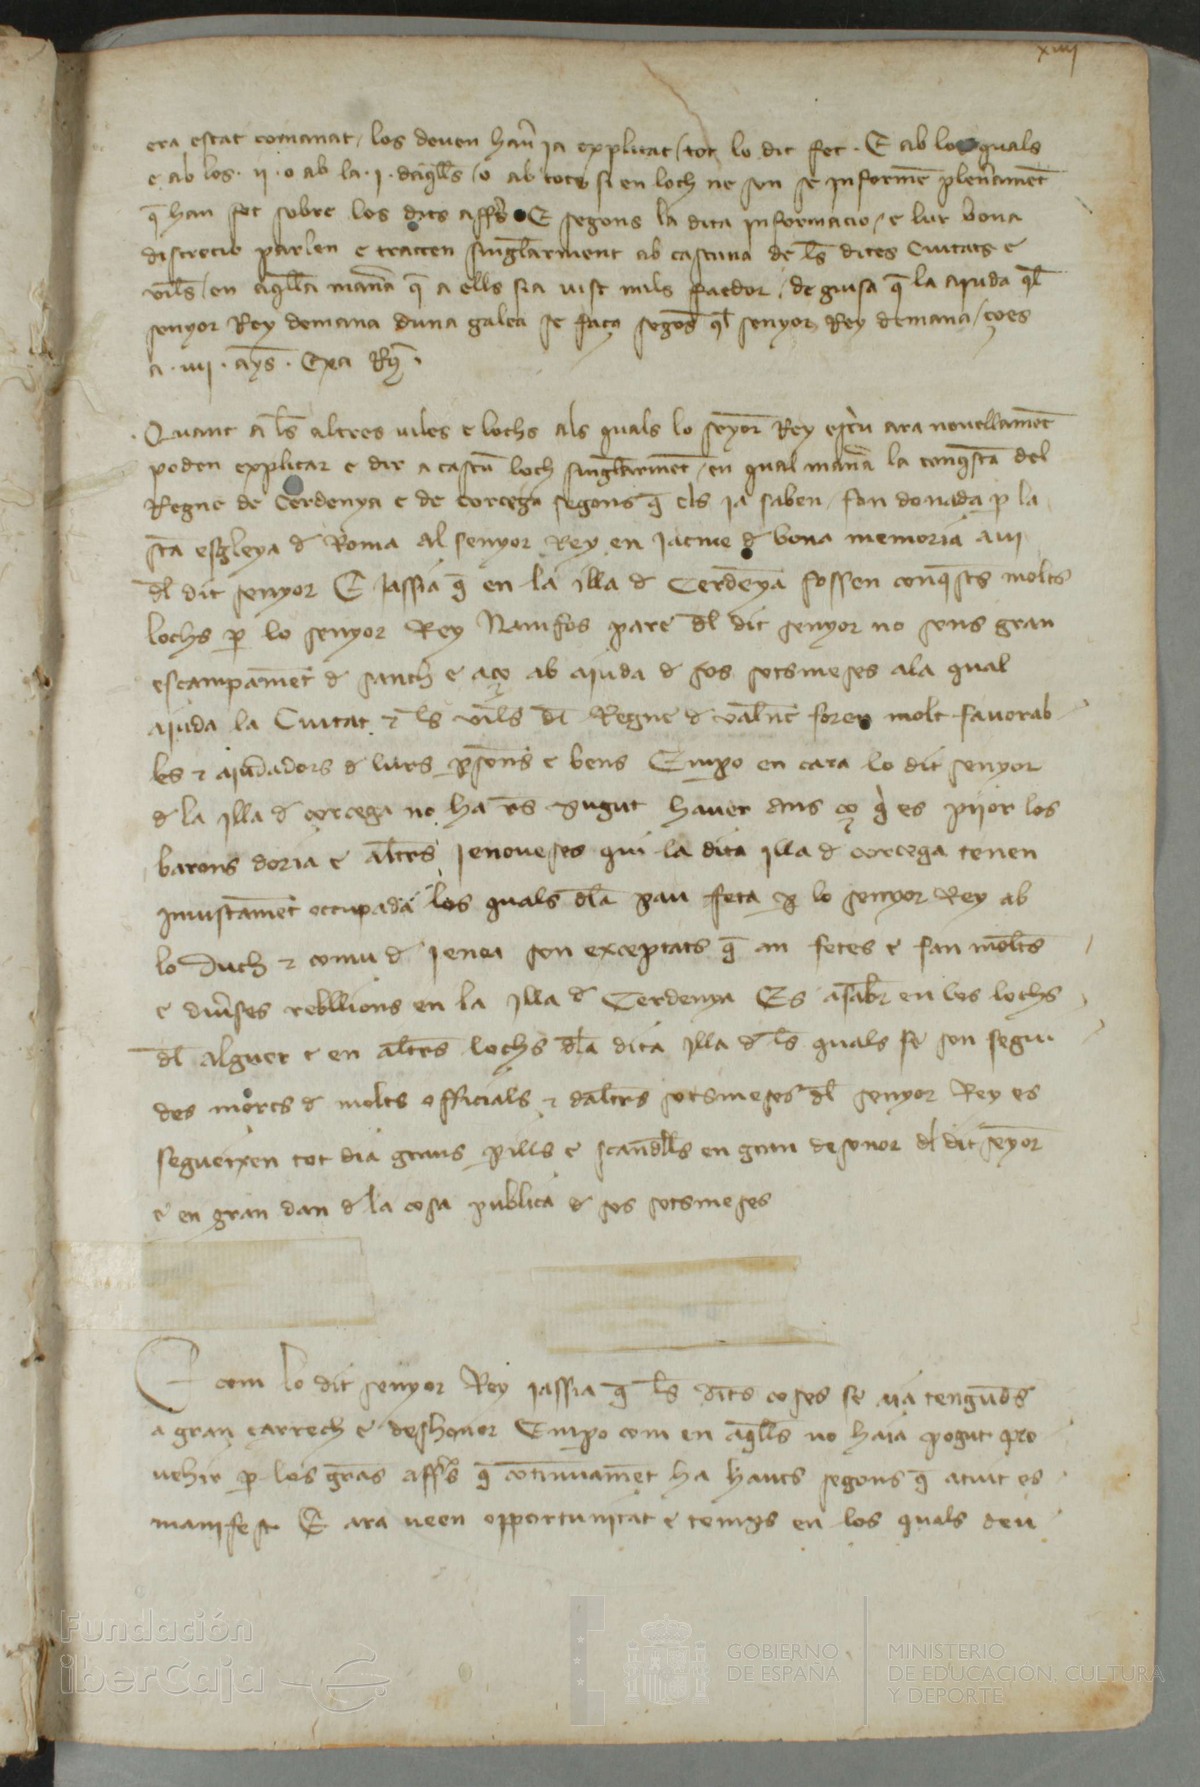 xiiij
era estat comanat / los deuen hau̅ ia explicat / tot lo dit fet · E ab los quals
e ab los · ii · o ab la · i · daq̅lls / o ab tots si en loch ne son se informe̅ plen̅ame̅t
q̅ han fet sobre los dits affs̅ · E segons la dita informacio / e lur bona
discrecio parlen e tracten singl̅arment ab cascuna de ls̅ dites Ciutats e
viles / en aq̅lla mana̅ q̅ a ells sia uist mils faedor / de guisa q̅ la aiuda ql̅
senyor Rey demana duna galea se faça segos̅ ql̅ senyor Rey demana / çoes
a · iiij · ays̅ ·
Quant a ls̅ altres uiles e lochs als quals lo seyor̅ Rey escriu̅ ara nouellame̅t
poden explicar e dir a cascu̅ loch singl̅arme̅t / en qual mana̅ la conq̅sta del
Regne de Cerdenya e de Corcega segons q̅ els ia saben / fon donada p̲ la
sta̅ esgleya d Roma al senyor Rey en Jacme d bona memoria aui
dl̅ dit senyor E Jassia q̅ en la illa d Cerdeny̅a fossen conq̅sts molts
lochs p̲ lo senyor Rey Namfos pare dl̅ dit senyor no sens gran
escampame̅t d sanch e aço ab aiuda d sos sotsmeses ala qual
aiuda la Ciutat & ls̅ vil̅s dl̅ Regne d Valn̅c foren molt fauorab
les & aiudadors d lurs p̲son̅s e bens Emp̲o en cara lo dit senyor
d la illa d corcega no ha rs̅ pugut hauer ans ço q̅ es piior los
barons doria e alt̅rs Jenoueses qui la dita illa d corcega tenen
iniustame̅t occupada los quals dl̅a pau feta p̲ lo senyor Rey ab
lo Duch & comu d Jenoa son exceptats q̅ an fetes e fan molt̅s
e diu̅ses rebellions en la illa d Cerdenya Es asab̅r en los lochs
dl̅ alguer e en alt̅rs lochs dl̅a dita illa d ls̅ quals se son segui
des morts d molts officials & dalt̅rs sotsmeses dl̅ senyor Rey es
segueixen tot dia grans p̲ills e scandl̅ls en gran desonor dl̅ dit seyor̅
e en gran dan d la cosa publica d sos sotsmeses
E com lo dit senyor Rey jassia q̅ ls̅ dit̅s coses se aia tengud̅s
a gran carrech e deshonor Emp̲o com en aq̅lls no haia pogut pro
uehir p̲ los gra̅s affs̅ q̅ co̅tinuame̅t ha hauts segons q̅ atuit es
manifest E ara ueen opportunitat e temps en los quals deu
Fundación
iberCaja
GOBIERNO
DE ESPAÑA
MINISTERIO
DE EDUCACIÓN, CULTURA
Y DEPORTE